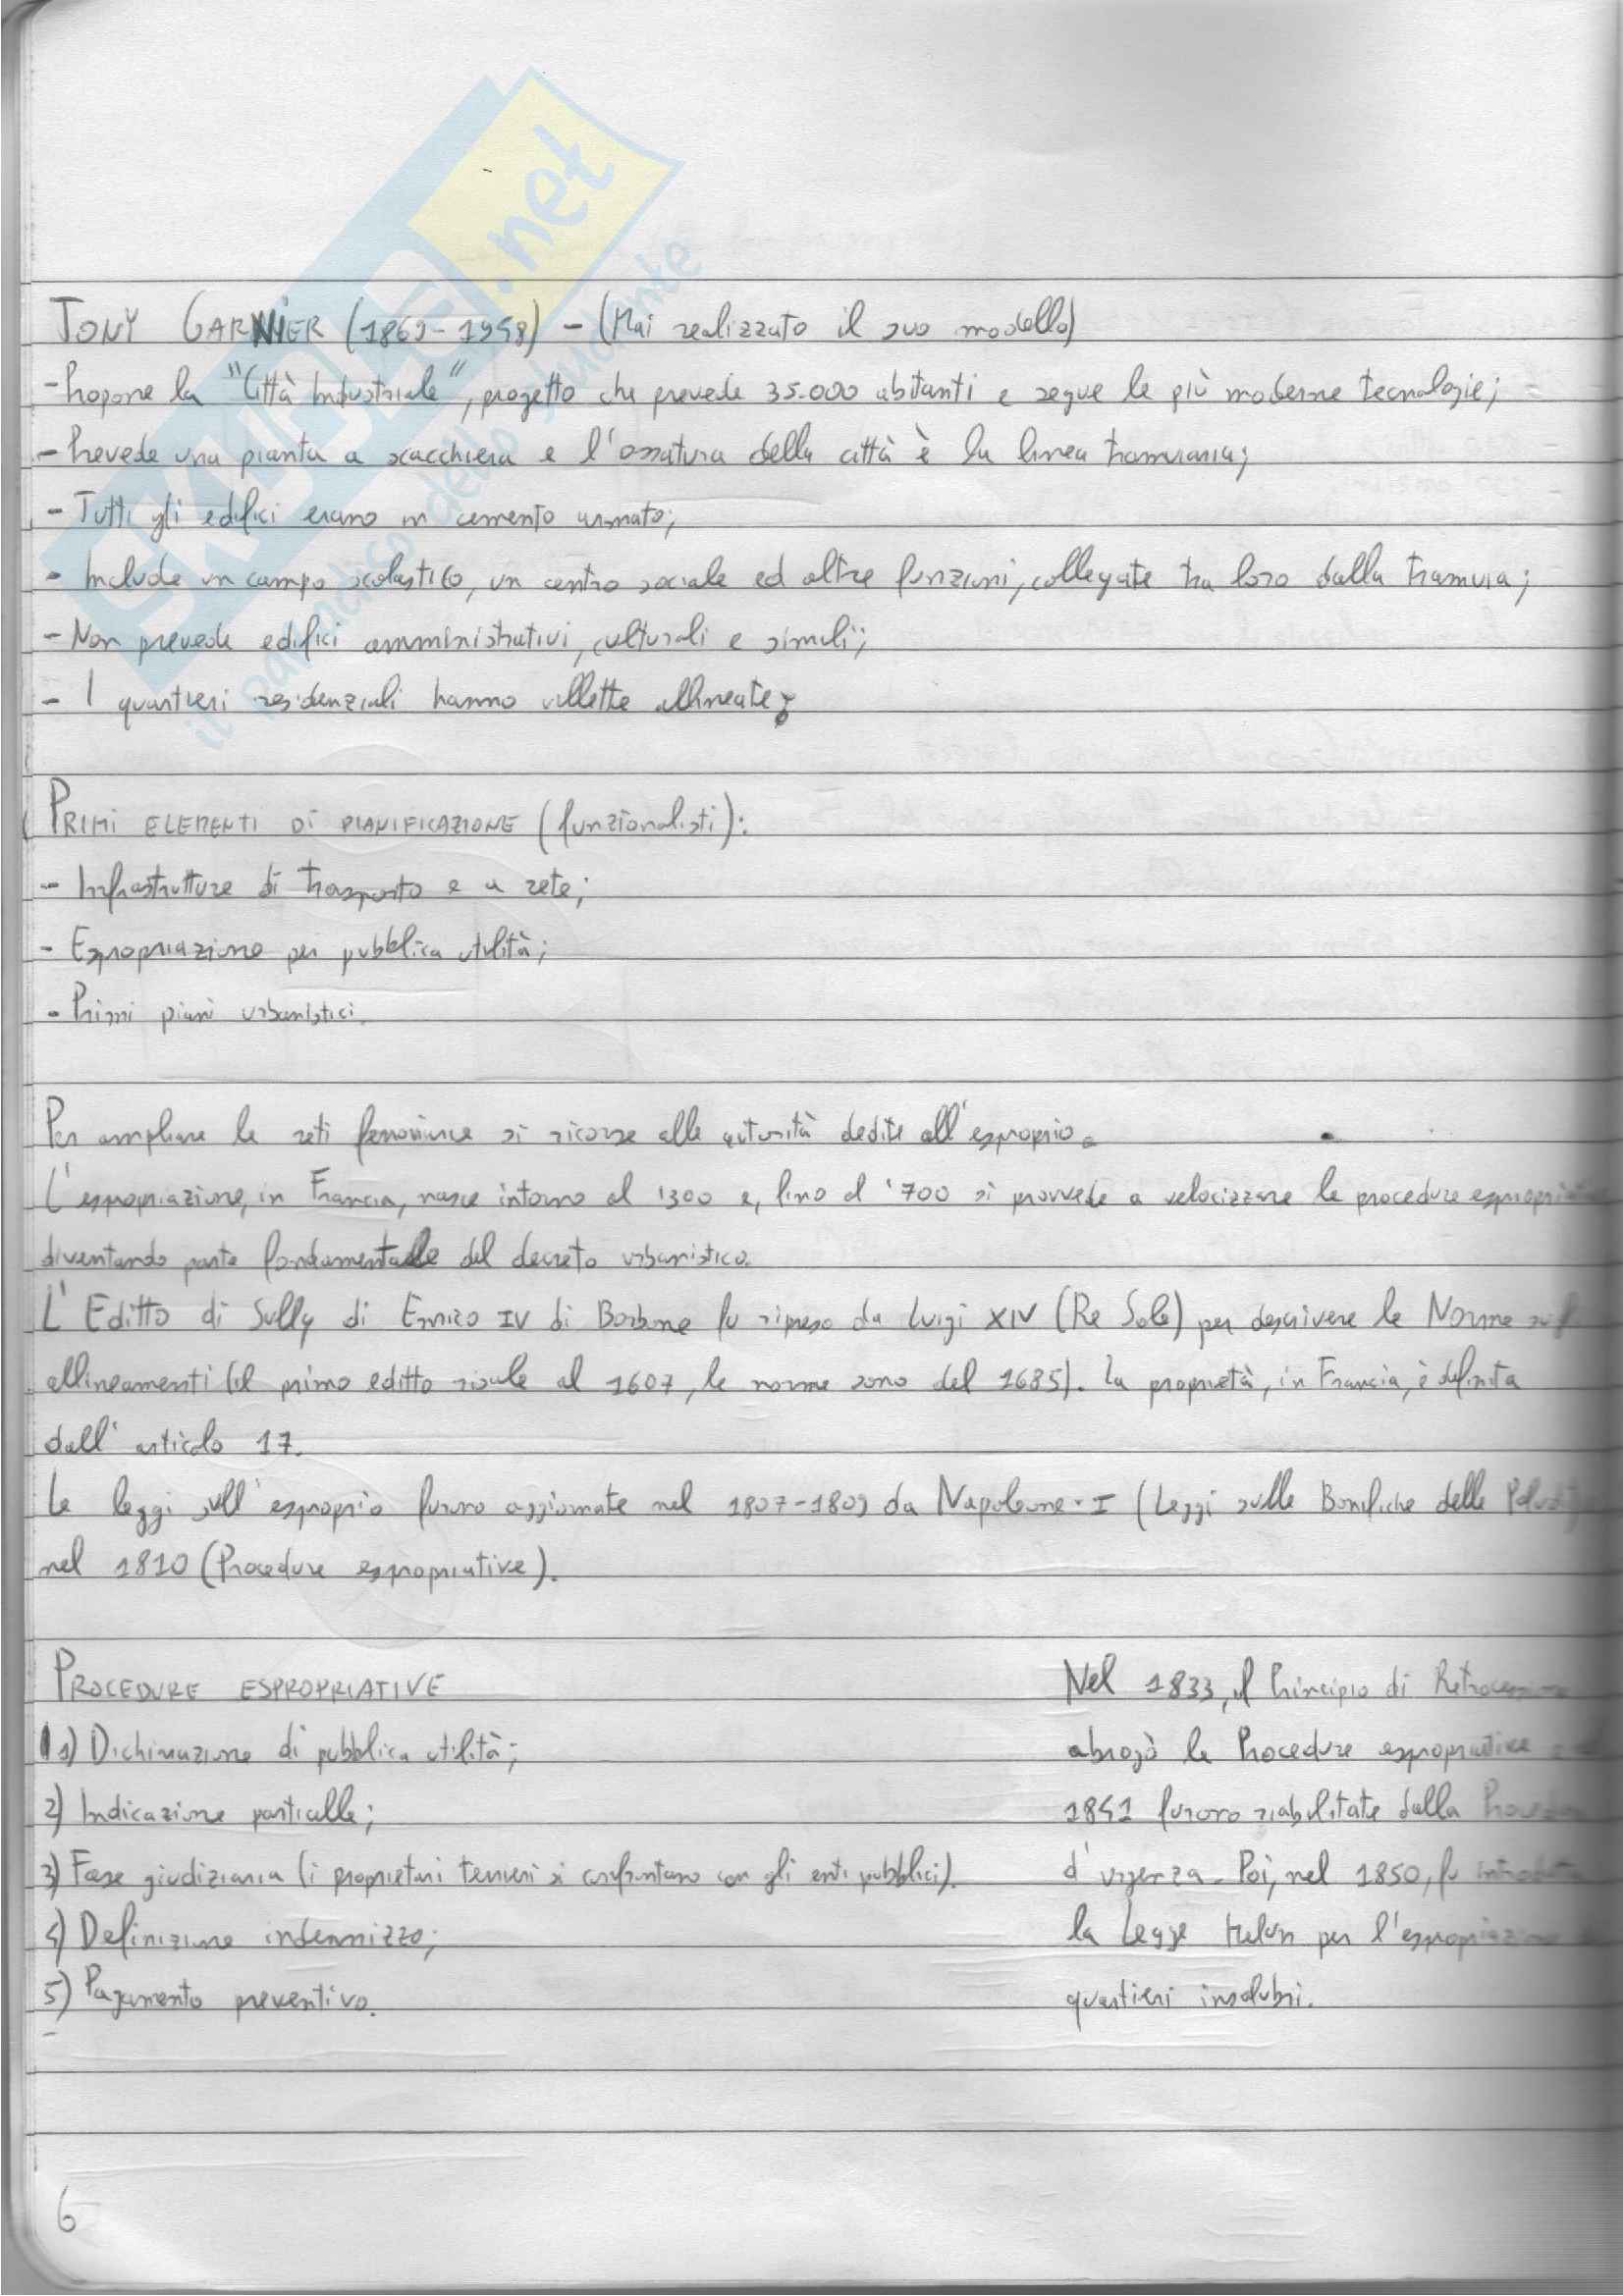 TONY GARNIER (1869-1948) - (Mai realizzato il suo modello)
- Propone la "Città Industriale", progetto che prevede 35.000 abitanti e segue le più moderne tecnologie;
- Prevede una pianta a scacchiera e l'ossatura della città è la linea tramviaria;
- Tutti gli edifici erano in cemento armato;
- Include un campo scolastico, un centro sociale ed altre funzioni, collegate tra loro dalla tramvia;
- Non prevede edifici amministrativi, culturali e simili;
- I quartieri residenziali hanno villette allineate;
PRIMI ELEMENTI DI PIANIFICAZIONE (funzionalisti):
- Infrastrutture di trasporto e a rete;
- Espropriazione per pubblica utilità;
- Primi piani urbanistici.
Per ampliare le reti ferroviarie si ricorse alle autorità dedite all'esproprio.
L'espropriazione, in Francia, nasce intorno al '300 e, fino al '700 si provvede a velocizzare le procedure
diventando parte fondamentale del decreto urbanistico.
L'Editto di Sully di Enrico IV di Borbone fu ripreso da Luigi XIV (Re Sole) per descrivere le Norme
allineamenti (il primo editto risale al 1607, le norme sono del 1685). La proprietà, in Francia, è definita
dall'articolo 17.
Le leggi sull'esproprio furono aggiornate nel 1807-1809 da Napoleone I (Leggi sulle Bonifiche delle
nel 1810 (Procedure espropriative).
PROCEDURE ESPROPRIATIVE
1) Dichiarazione di pubblica utilità;
2) Indicazione particelle;
3) Fase giudiziaria (i proprietari terrieri si confrontano con gli enti pubblici).
4) Definizione indennizzo;
5) Pagamento preventivo.
Nel 1833, il Principio di
abrogò le Procedure espropriative
1841 furono riabilitate dalla
d'urgenza. Poi, nel 1850, fu
la Legge Melun per l'espropriazione
quartieri insalubri.
6
SKUOLA.net
il paradiso dello studente